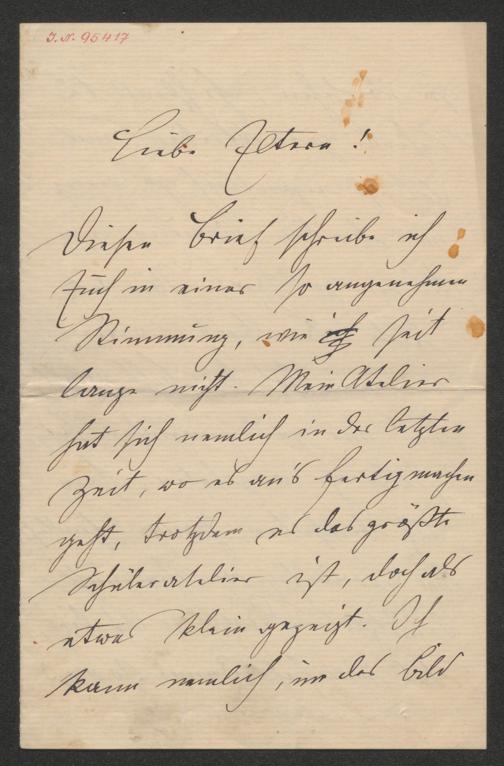 J. N. 95417
Liebe Eltern!
Diesen Brief schreibe ich
Euch in einer so angenehmen
Stimmung, wie seit
lange nicht. Mein Atelier
hat sich nemlich in der letzten
Zeit, wo es an's fertigmachen
geht, trotzdem es das größte
Schüleratelier ist, doch als
etwas klein gezeigt. Ich
kann nemlich, um das Bild